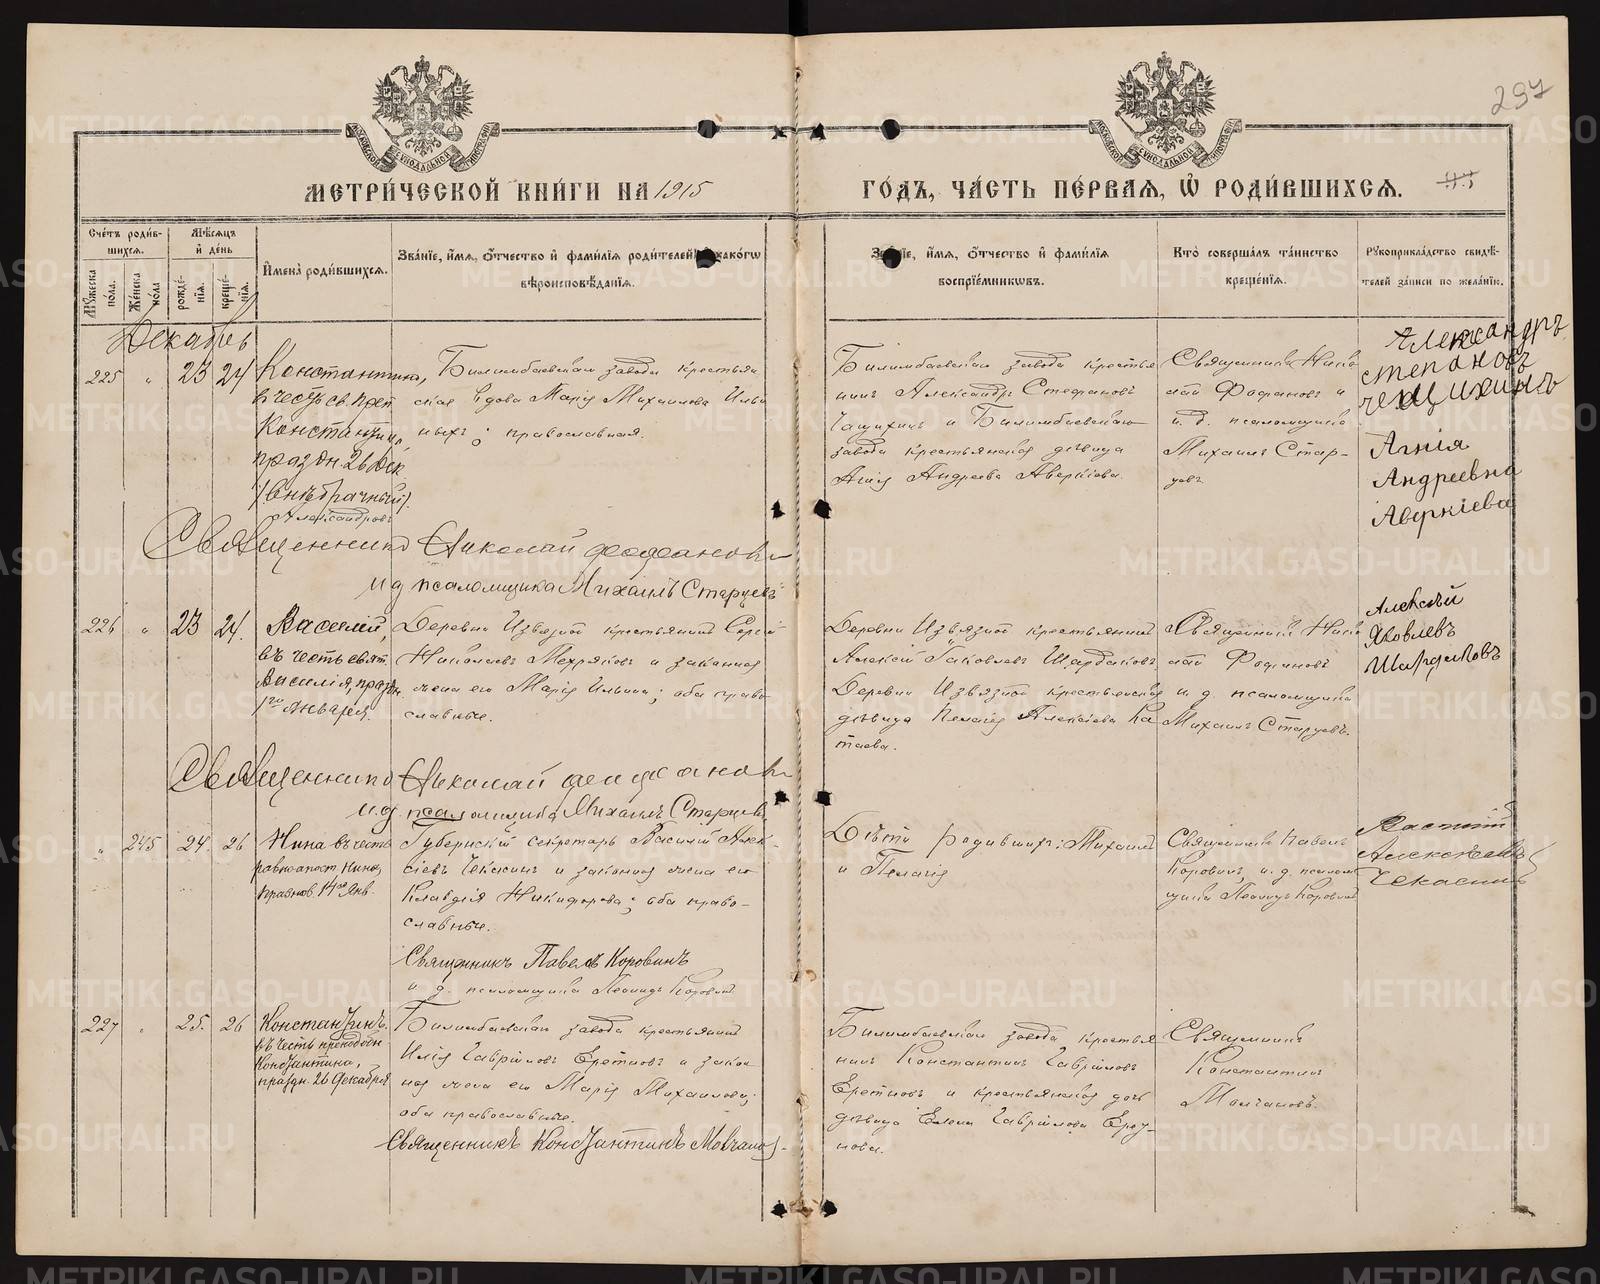 297
МЕТРИ́ЧЕСКОЙ КНИ́ГИ НА 1915
ГО́ДЪ, ЧА́СТЬ ПЕ́РВАѦ, Ѡ҆ РОДИ́ВШИХСѦ.
Счетъ роди́в-
шихсѧ.
Мѣ́сѧцъ
и҆ де́нь
Мꙋ́жеска по́ла.
Же́нска по́ла
рожде́нїѧ.
креще́нїѧ.
И҆мена̀ роди́вшихсѧ.
Зва́нїе, и҆́мѧ, ѻ҆́тчество и҆ фами́лїѧ роди́телей, и҆ како́гѡ
вѣроисповѣ́данїѧ.
Зва́нїе, и҆́мѧ, ѻ҆́тчество и҆ фами́лїѧ
воспрїе́мникѡвъ.
Кто̀ соверша́лъ та́инство
креще́нїѧ.
Рꙋкоприкла́дство свидѣ́-
телей за́писи по жела́нїю.
Декабрь
225 " 23 24
Константинъ,
въ честь св. преп
Константина,
праздн. 26 Дек
/внѣбрачный/.
Александровъ
Билимбаевскаго завода крестьян
ская вдова Марія Михаилова Ильи
ныхъ; православная.
Билимбаевскаго завода крестья
нинъ Александръ Стефановъ
Чащихинъ и Билимбаевскаго
завода крестьянская дѣвица
Агнія Андреева Аверкіева.
Священникъ Нико
лай Фофановъ и
и. д. псаломщика
Михаилъ Стар-
цевъ
Александръ
степановъ
чещихинъ
Агнія
Андреевна
Аверкіева
Священникъ Николай Фофановъ
и д псаломщика Михаилъ Старцевъ
226 " 23 24.
Василій,
въ честь свят.
Василія, празд.
1го Января.
Деревни Извѣзной крестьянинъ Сергѣй
Николаевъ Мехряковъ и законная
жена его Марія Ильина; оба право
славные.
Деревни Извѣзной крестьянинъ
Алексѣй Іаковлевъ Шардаковъ
Деревни Извѣзной крестьянская
дѣвица Пелагія Алексѣева Ка
таева.
Священникъ Нико
лай Фофановъ
и. д. псаломщика
Михаилъ Старцевъ.
Алексѣй
Яковлевъ
Шардаковъ
Священникъ Николай Фофановъ
и.д. псаломщика Михаилъ Старцевъ
" 245 24. 26
Нина въ честь
равноапост. Нины
празднов. 14го Янв.
Губернскій секретарь Василій Алек-
сѣевъ Чекасинъ и законная жена его
Клавдія Никифорова; оба право-
славные.
Дѣти родивших: Михаилъ
и Пелагія
Священникъ Павелъ
Коровинъ, и. д. псалом
щика Леонидъ Коровинъ
Василій
Алексѣевъ
Чекасинъ
Священникъ Павелъ Коровинъ
и. д. псаломщика Леонидъ Коровинъ
227 " 25. 26
Константинъ.
въ честь преподобн
Константина,
праздн. 26 декабря
Билимбаевскаго завода крестьянинъ
Илія Гавріиловъ Еретновъ и закон
ная жена его Марія Михаилова;
оба православные.
Билимбаевскаго завода крестья
нинъ Константинъ Гавріиловъ
Еретновъ и крестьянская дочь
дѣвица Елена Гавріилова Ерет-
нова.
Священникъ
Константинъ
Молчановъ.
Священникъ Константинъ Молчановъ.
METRIKI.GASO-URAL.RU